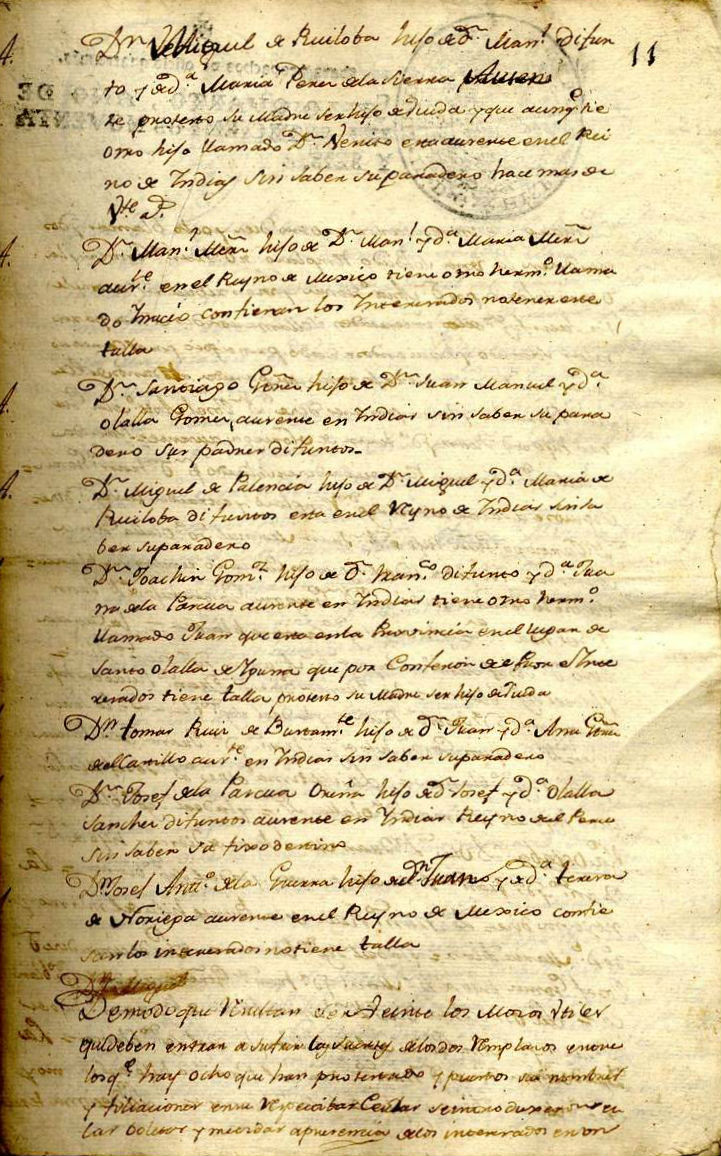 11
Dn Miguel de Ruiloba hijo de dn Manl difun
to y de da Maria Perez de la Sierra
te protesto su Madre ser hijo de Viuda y que aunqe tie
otro hijo llamado Dn Venito esta ausente en el Rei
no de Indias sin saber su paradero hace mas de
Vte as
Dn Manl hijo de Dn Manl y da Maria
austе en el Reyno de Mexico tiene otro hermo llama
do Inacio confiesan los Interesados no tener este
talla
Dn Santiago hijo de Dn Juan Manuel y da
Olalla Gomez, ausente en Indias sin saber su para
dero sus padres difuntos
Dn Miguel de Palencia hijo de Dn Miguel y da Maria de
Ruiloba difuntos esta en el Reyno de Indias sin sa
ber su paradero
Dn Joachin Gomz hijo de dn Franco difunto y da Jua
na de la Pascua ausente en Indias tiene otro hermo
llamado Juan que esta en la Provincia en el lugar de
Santa Olalla de que por Confesion de
resados tiene talla protesto su Madre ser hijo de Viuda
Dn tomas Ruiz de Bustamte hijo de dn Juan y da Ana
del Castillo auste en Indias sin saber su paradero
Dn Josef de la Pascua Oreña hijo de dn Josef y da Olalla
Sanchez difuntos ausente en Indias Reyno del Peru
sin saber su fixo destino
Dn Josef Anto de la Guerra hijo de dn Juan y de da teresa
de Noriega ausente en el Reyno de Mexico confie
san los interesados no tiene talla
De modo que resultan ser veinte los Mozos utiles
que deben entrar a sufrir las suertes de los dos remplazos entre
los qe hay ocho que han protestado y puestos sus nombres
y filiaciones en
lar boletas y medidas a presencia de los interesados en